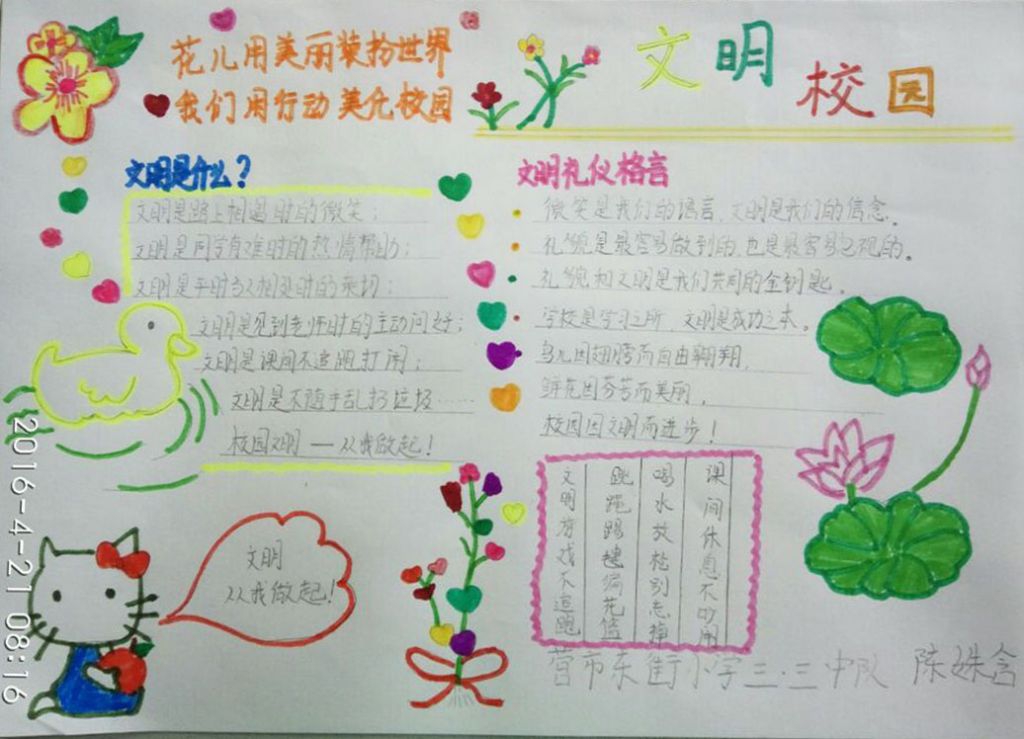 花儿用美丽装扮世界
我们用行动美化校园
文明校园
文明是什么？
文明是路上相遇时的微笑；
文明是同学有难时的热情帮助；
文明是平时与人相处时的亲切；
文明是见到老师时的主动问好；
文明是课间不追跑打闹；
文明是不随手乱扔垃圾……
校园文明 — 从我做起！
文明礼仪格言
微笑是我们的语言，文明是我们的信念。
礼貌是最容易做到的，也是最容易忽视的。
礼貌和文明是我们共同的金钥匙。
学校是学习之所，文明是成功之本。
鸟儿因翅膀而自由翱翔，
鲜花因芬芳而美丽，
校园因文明而进步！
课间休息不吵闹
喝水放松别忘掉
跳绳踢毽编花篮
文明游戏不追跑
文明
从我做起！
营市东街小学三·三中队 陈姝含
2016-4-21 08:16